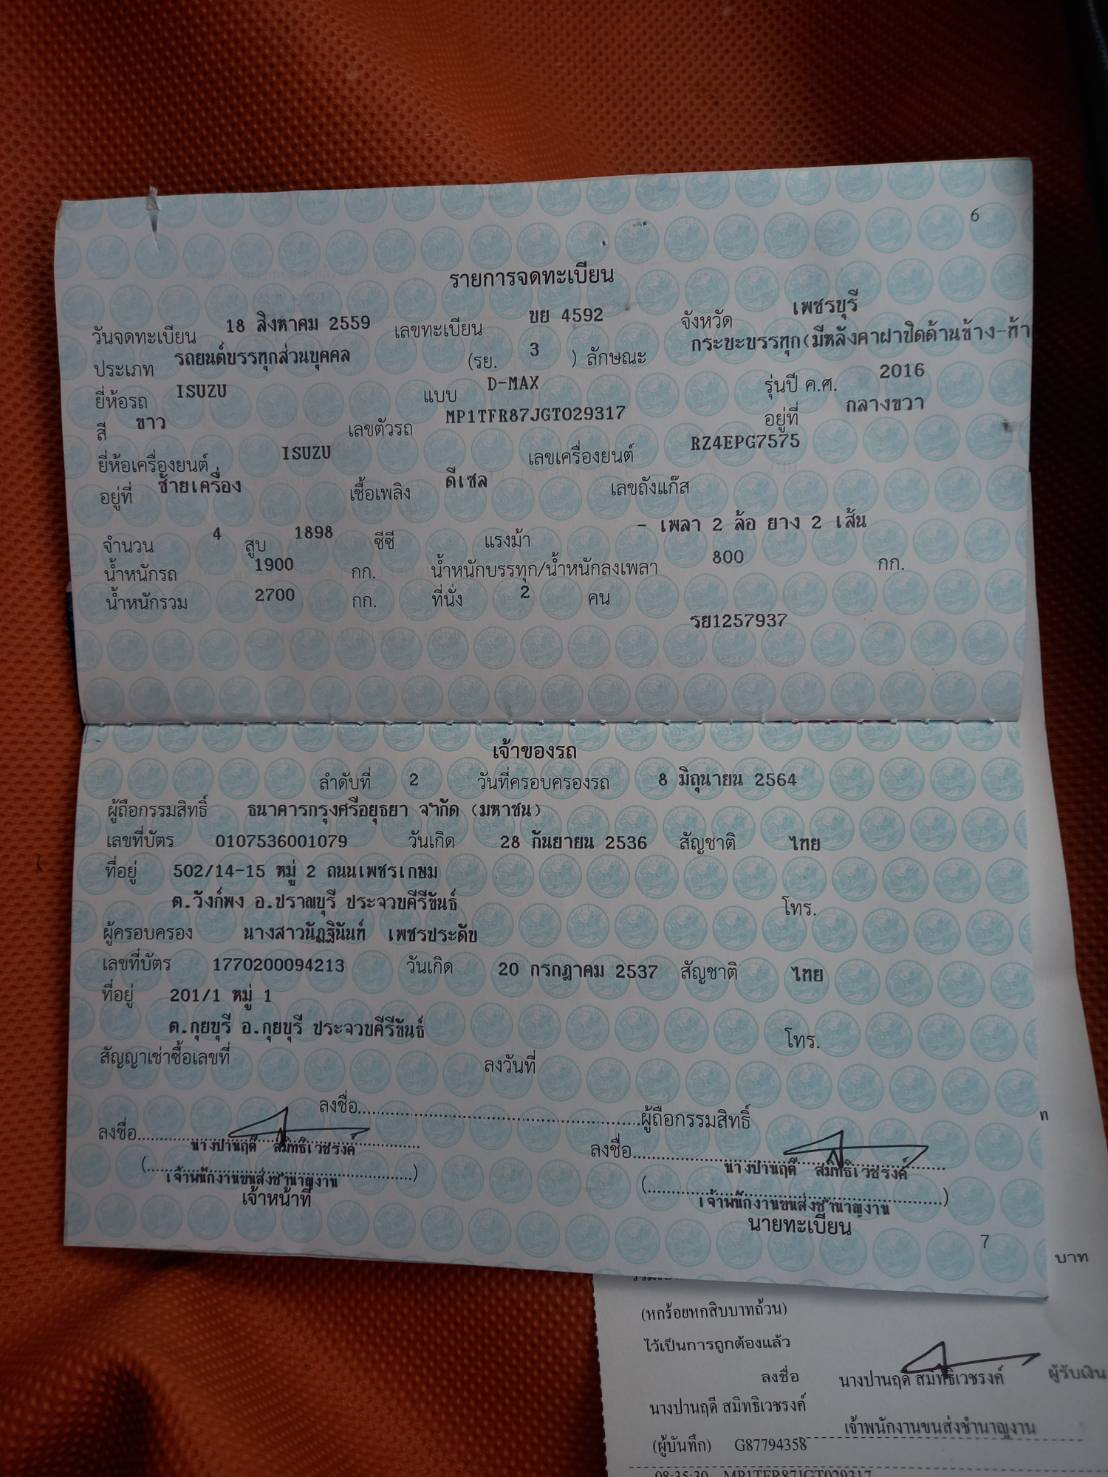 6
รายการจดทะเบียน
วันจดทะเบียน 18 สิงหาคม 2559 เลขทะเบียน ขย 4592 จังหวัด เพชรบุรี
ประเภท รถยนต์บรรทุกส่วนบุคคล (รย. 3 ) ลักษณะ กระบะบรรทุก(มีหลังคาฝาปิดด้านข้าง-ท้า
ยี่ห้อรถ ISUZU แบบ D-MAX รุ่นปี ค.ศ. 2016
สี ขาว เลขตัวรถ MP1TFR87JGT029317 อยู่ที่ กลางขวา
ยี่ห้อเครื่องยนต์ ISUZU เลขเครื่องยนต์ RZ4EPG7575
อยู่ที่ ซ้ายเครื่อง เชื้อเพลิง ดีเซล เลขถังแก๊ส
จำนวน 4 สูบ 1898 ซีซี แรงม้า - เพลา 2 ล้อ ยาง 2 เส้น
น้ำหนักรถ 1900 กก. น้ำหนักบรรทุก/น้ำหนักลงเพลา 800 กก.
น้ำหนักรวม 2700 กก. ที่นั่ง 2 คน
รย1257937
เจ้าของรถ
ลำดับที่ 2 วันที่ครอบครองรถ 8 มิถุนายน 2564
ผู้ถือกรรมสิทธิ์ ธนาคารกรุงศรีอยุธยา จำกัด (มหาชน)
เลขที่บัตร 0107536001079 วันเกิด 28 กันยายน 2536 สัญชาติ ไทย
ที่อยู่ 502/14-15 หมู่ 2 ถนนเพชรเกษม
ต.วังก์พง อ.ปราณบุรี ประจวบคีรีขันธ์ โทร.
ผู้ครอบครอง นางสาวนัฏฐินันท์ เพชรประดับ
เลขที่บัตร 1770200094213 วันเกิด 20 กรกฎาคม 2537 สัญชาติ ไทย
ที่อยู่ 201/1 หมู่ 1
ต.กุยบุรี อ.กุยบุรี ประจวบคีรีขันธ์ โทร.
สัญญาเช่าซื้อเลขที่ ลงวันที่
ลงชื่อ ผู้ถือกรรมสิทธิ์
ลงชื่อ นางปานฤดี สมิทธิเวชรงค์ ลงชื่อ นางปานฤดี สมิทธิเวชรงค์
(เจ้าพนักงานขนส่งชำนาญงาน) (เจ้าพนักงานขนส่งชำนาญงาน)
เจ้าหน้าที่ นายทะเบียน
7
บาท
(หกร้อยหกสิบบาทถ้วน)
ไว้เป็นการถูกต้องแล้ว
ลงชื่อ นางปานฤดี สมิทธิเวชรงค์ ผู้รับเงิน
นางปานฤดี สมิทธิเวชรงค์ เจ้าพนักงานขนส่งชำนาญงาน
(ผู้บันทึก) G87794358
08:35:30 MP1TFR87JGT029317